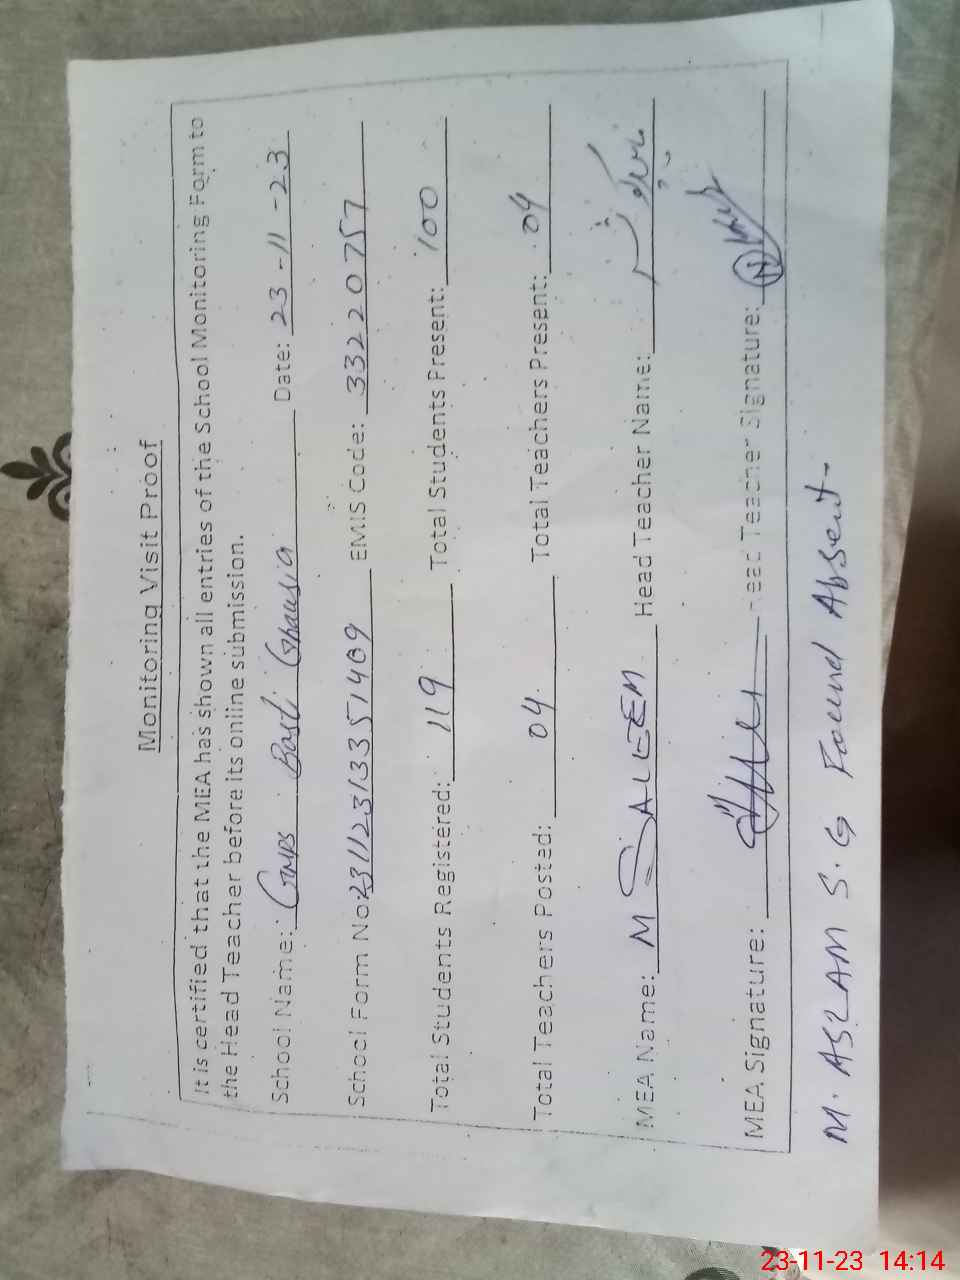 Monitoring Visit Proof
It is certified that the MEA has shown all entries of the School Monitoring Form to
the Head Teacher before its online submission.
School Name: Gmps Basti Ghausia Date: 23-11-23
School Form No: EMIS Code: 33220757
Total Students Registered: 119 Total Students Present: 100
Total Teachers Posted: 04 Total Teachers Present: 04
MEA Name: M SALEEM Head Teacher Name:
MEA Signature: Head Teacher Signature:
M. ASLAM S.G Found Absent-
23-11-23 14:14